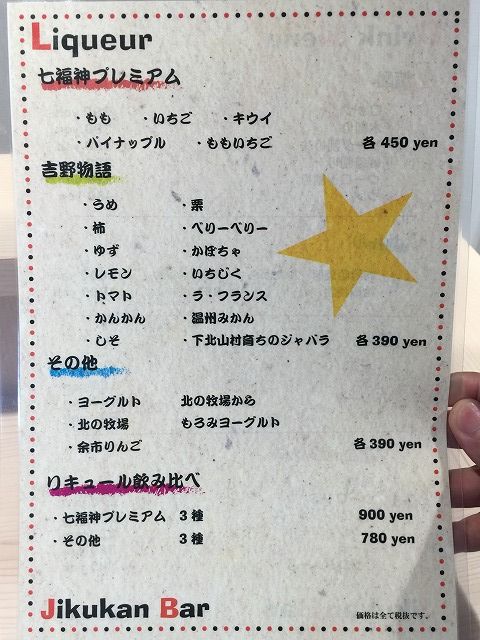 Liqueur
七福神プレミアム
・もも ・いちご ・キウイ
・パイナップル ・ももいちご 各 450 yen
吉野物語
・うめ ・栗
・柿 ・ベリーベリー
・ゆず ・かぼちゃ
・レモン ・いちじく
・トマト ・ラ・フランス
・かんかん ・温州みかん
・しそ ・下北山村育ちのジャバラ 各 390 yen
その他
・ヨーグルト 北の牧場から
・北の牧場 もろみヨーグルト
・余市りんご 各 390 yen
リキュール飲み比べ
・七福神プレミアム 3種 900 yen
・その他 3種 780 yen
Jikukan Bar
価格は全て税抜です。